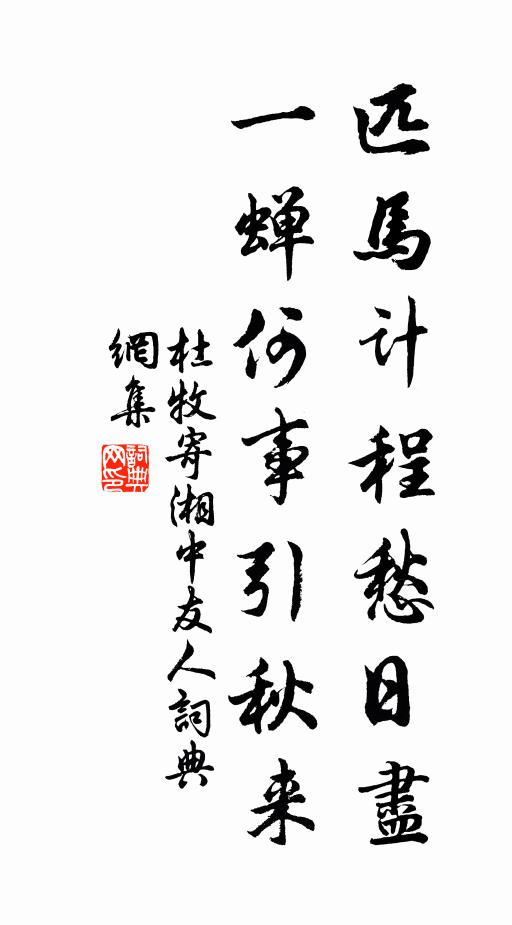 匹馬计程愁日盡
一蝉何事引秋来
杜牧寄湘中友人詞典
網集
詞典网印